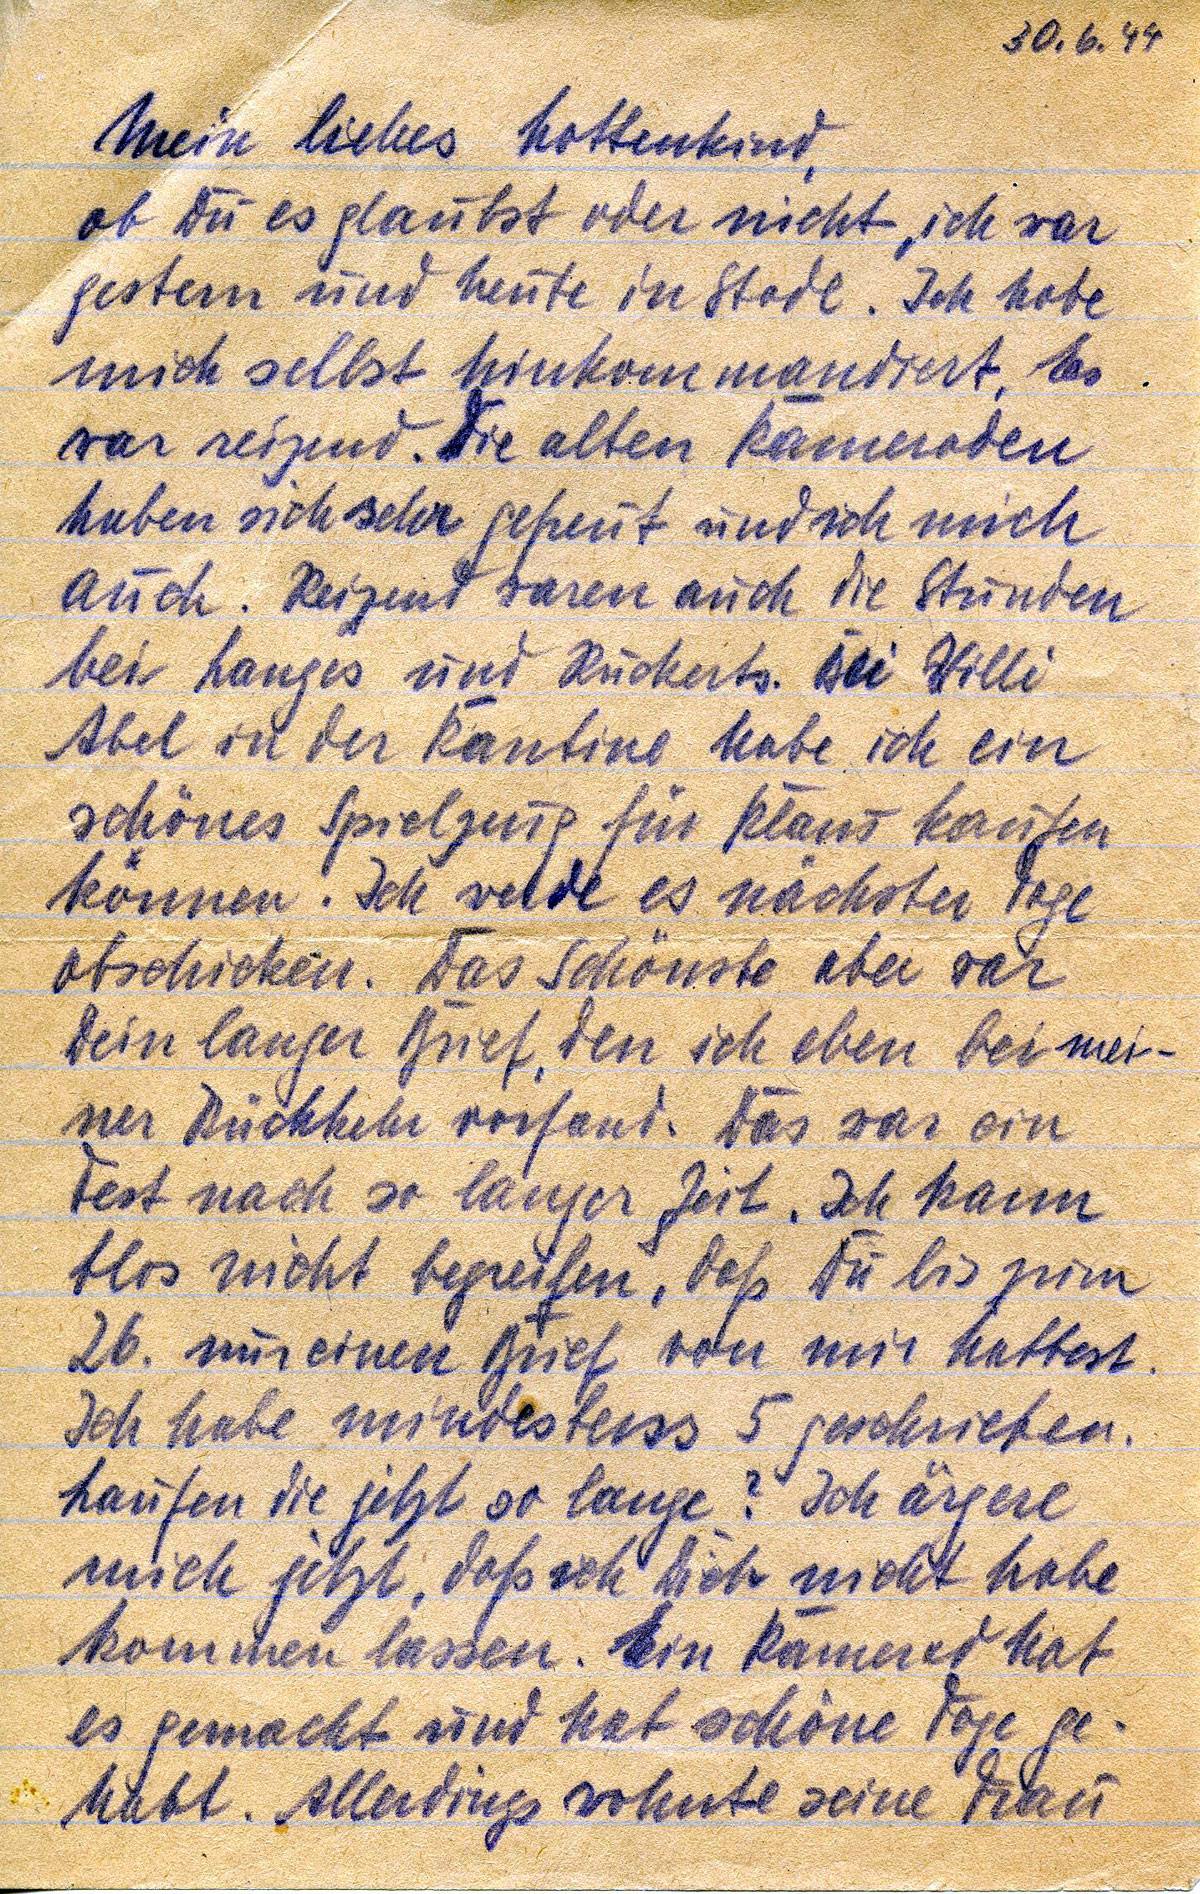 30.6.44
Mein liebes Lottenkind,
ob Du es glaubst oder nicht, ich war
gestern und heute in Stade. Ich habe
mich selbst hinkommandiert. Es
war reizend. Die alten Kameraden
haben sich sehr gefreut und ich mich
auch. Reizend waren auch die Stunden
bei Langes und Ruckerts. Bei Willi
Abel in der Kantine habe ich ein
schönes Spielzeug für Klaus kaufen
können. Ich werde es nächster Tage
abschicken. Das Schönste aber war
Dein langer Brief, den ich eben bei mei-
ner Rückkehr vorfand. Das war ein
Fest nach so langer Zeit. Ich kann
blos nicht begreifen, daß Du bis zum
26. nur einen Brief von mir hattest.
Ich habe mindestens 5 geschrieben.
Laufen die jetzt so lange? Ich ärgere
mich jetzt, daß ich Dich nicht habe
kommen lassen. Ein Kamerad hat
es gemacht und hat schöne Tage ge-
habt. Allerdings wohnte seine Frau